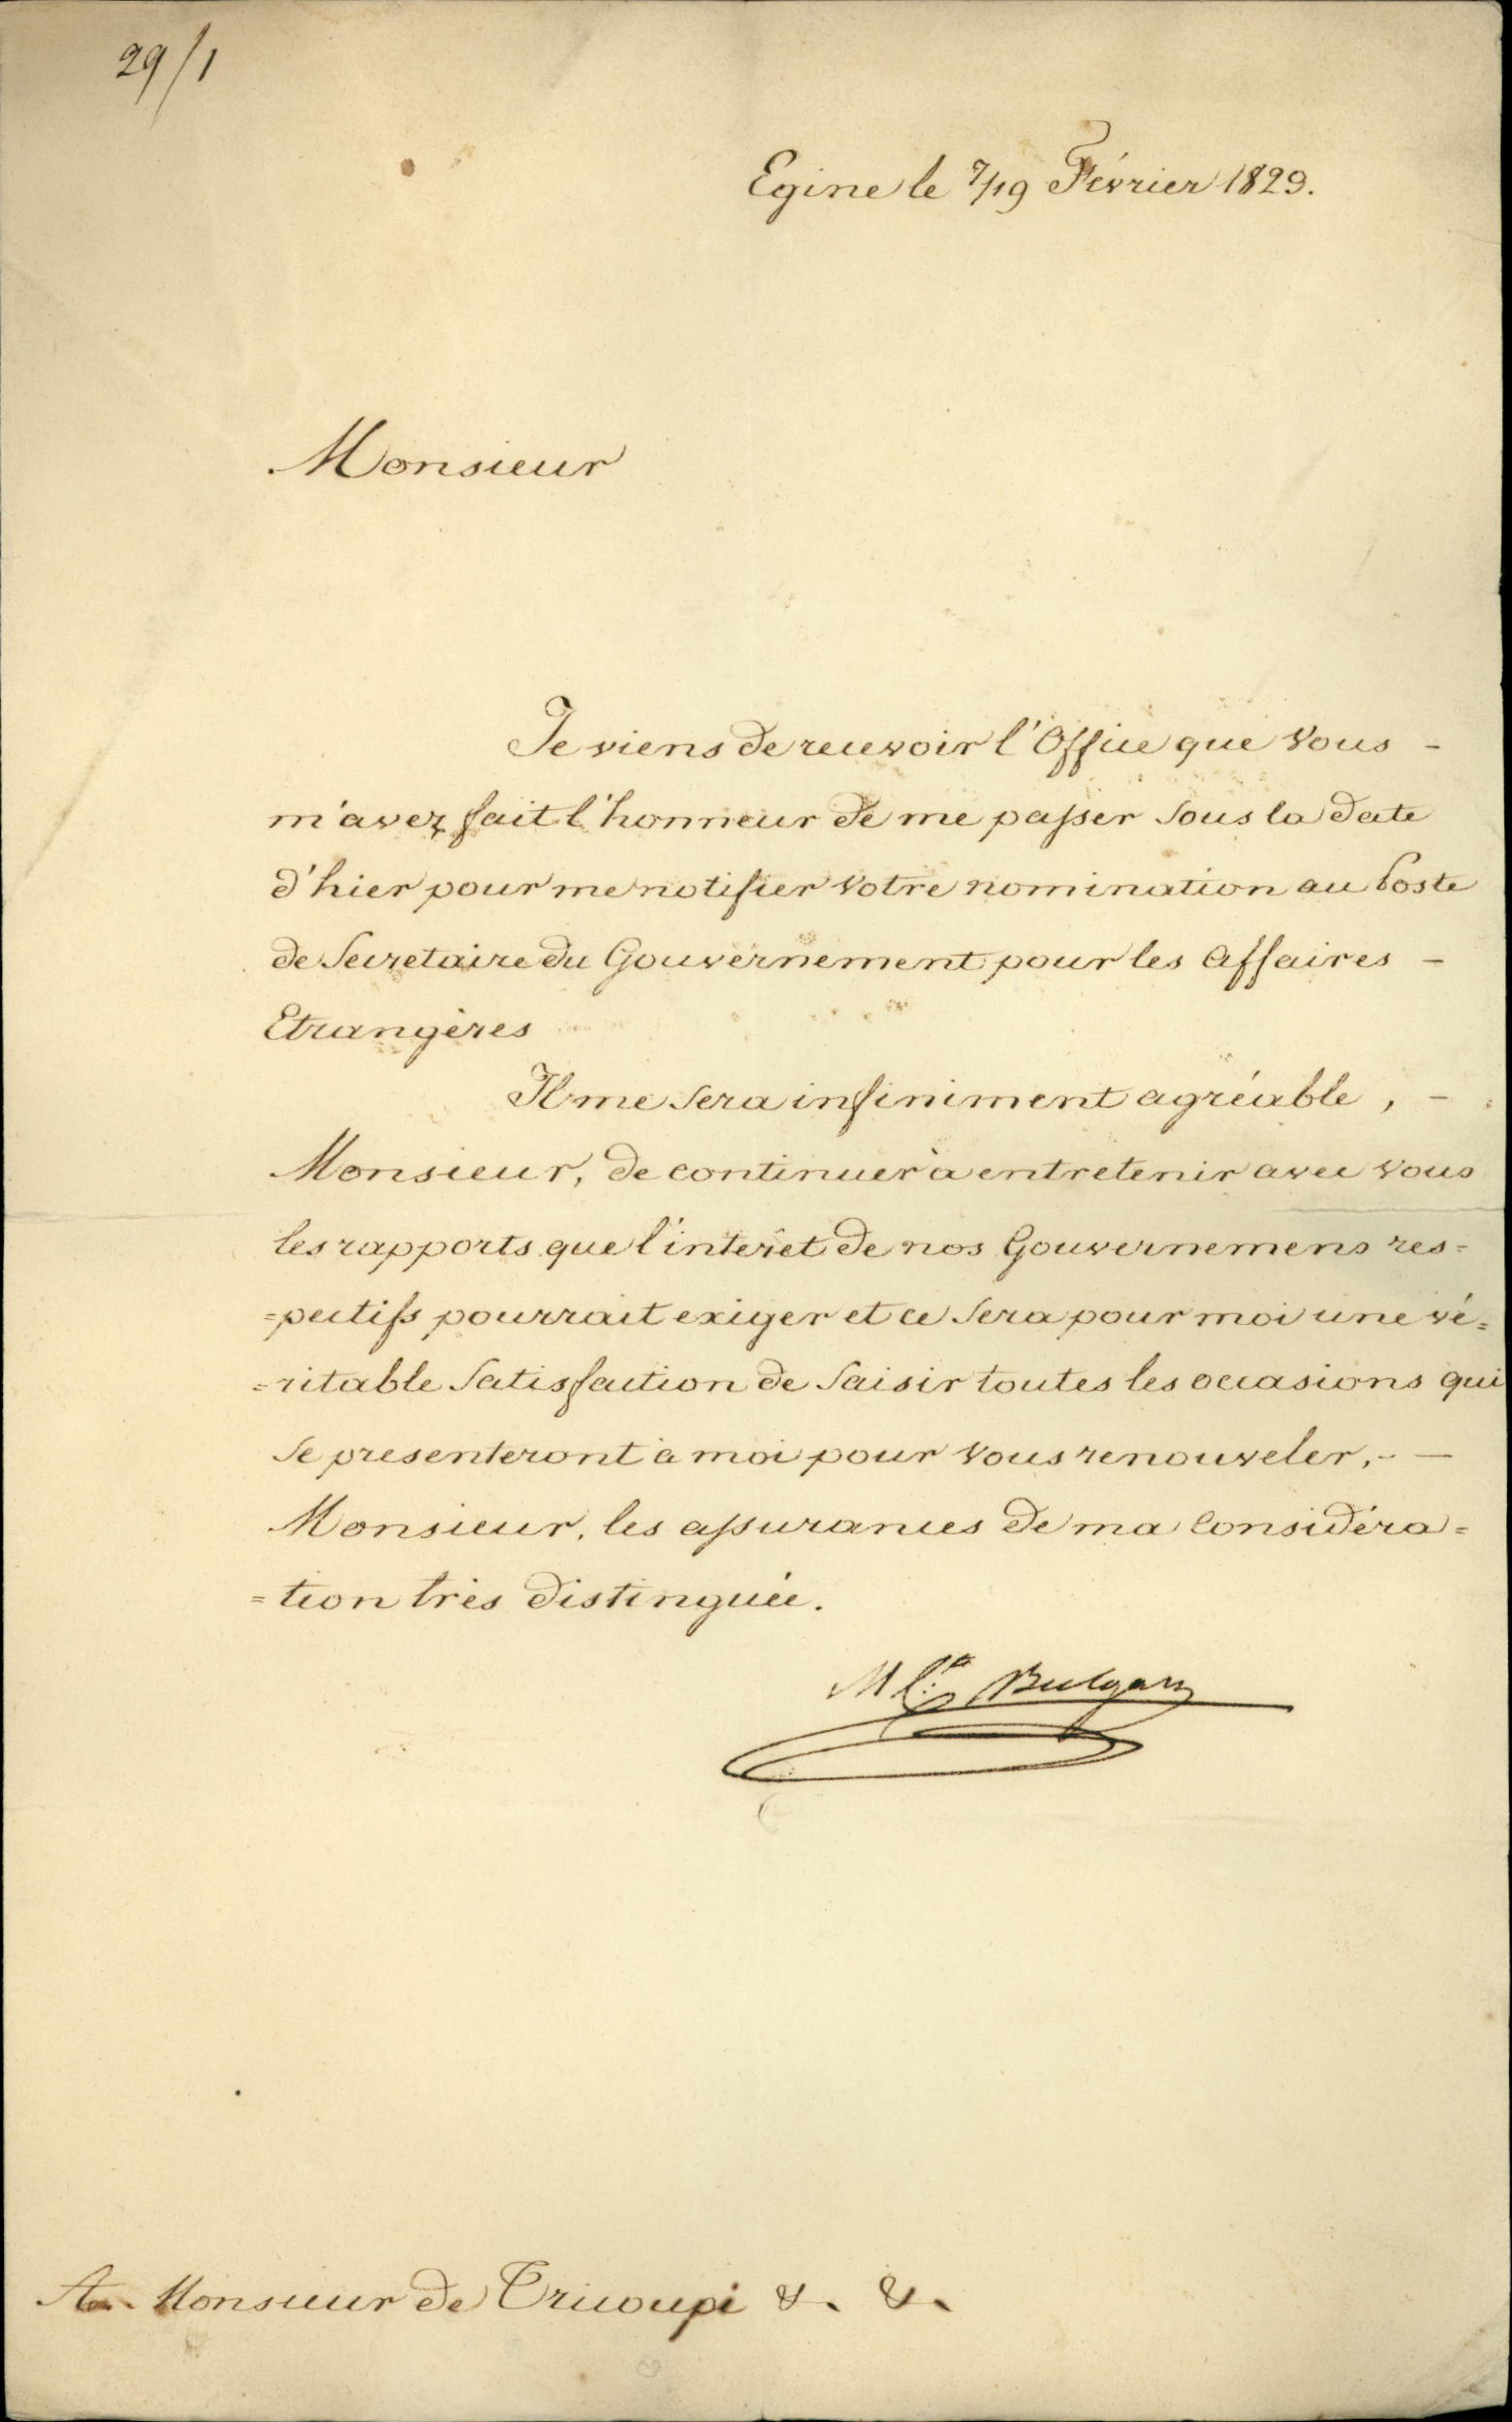 29/1
Egine le 7/19 Février 1829.
Monsieur
Je viens de recevoir l'Office que Vous -
m'avez fait l'honneur de me passer sous la date
d'hier pour me notifier Votre nomination au Poste
de Secretaire du Gouvernement pour les Affaires -
Etrangères
Il me sera infiniment agréable, -
Monsieur, de continuer à entretenir avec Vous
les rapports que l'interêt de nos Gouvernemens res=
=pectifs pourrait exiger et ce sera pour moi une vé=
=ritable satisfaction de saisir toutes les occasions qui
se presenteront à moi pour Vous renouveler, - —
Monsieur, les assurances de ma Considéra=
=tion très distinguée.
M C.te Bulgary
A Monsieur de Tricoupi &. &.